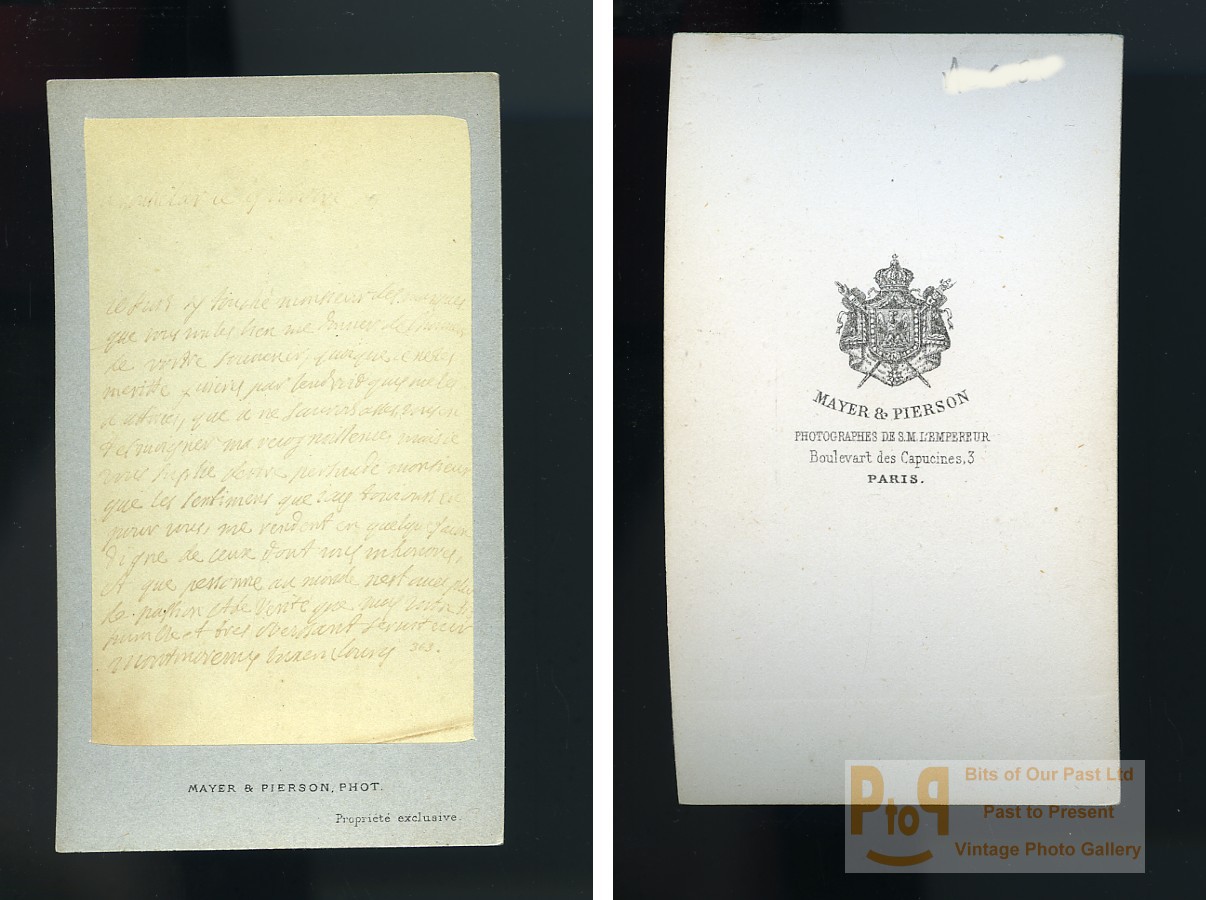 monsieur des marques
que vous voules bien me donner de
de vostre souvenir, quoique ie ne
meritte
que ie ne saurois asses vous en
tesmoigner ma recognoissence, mais ie
vous suplie destre persuadé monsieur
que les sentimens que iay tousiours eu
pour vous, me rendent en quelque facon
digne de ceux dont vous mhonores,
et que personne au monde nest avec plus
de passion et de verité que moy vostre t
humble et tres obeissant serviteur
Montmorency Luxembourg 303.
MAYER & PIERSON, PHOT.
Propriété exclusive.
MAYER & PIERSON
PHOTOGRAPHES DE S.M. L'EMPEREUR
Boulevart des Capucines, 3
PARIS.
PtoP
Bits of Our Past Ltd
Past to Present
Vintage Photo Gallery